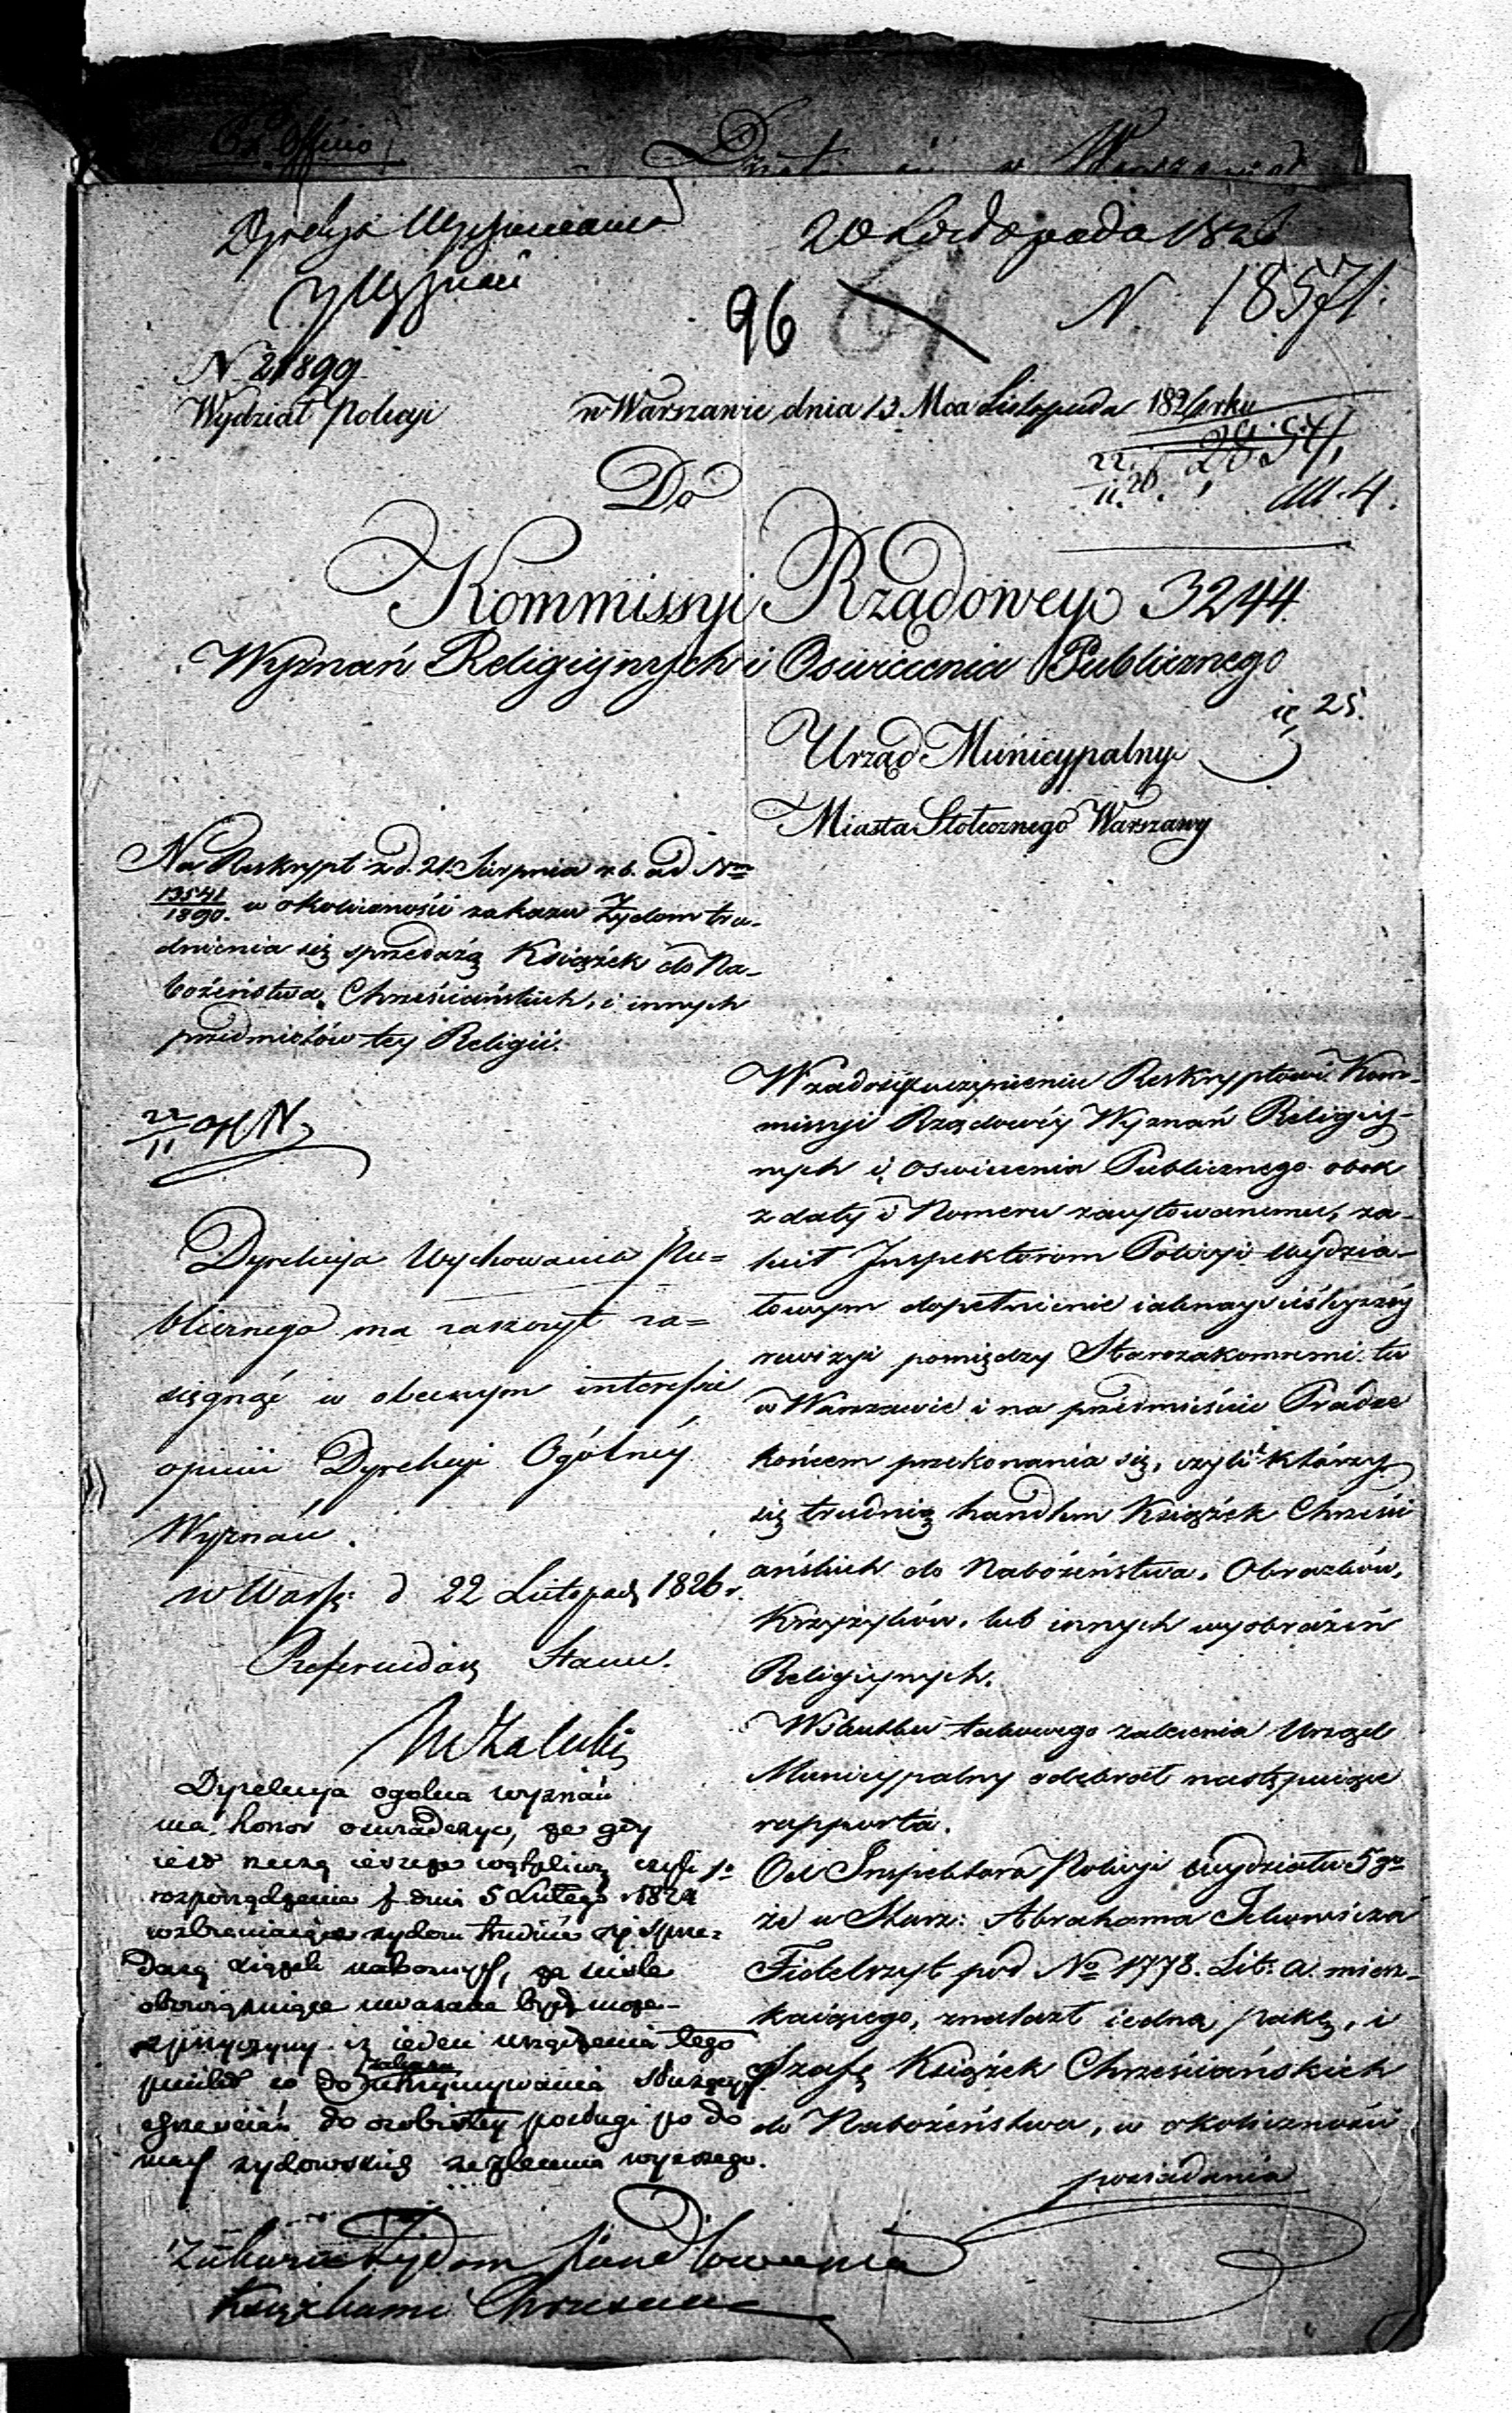 Ex Officio
Dyrekcja Wychowania
y Wyznań
20 Listopada 1826
N 18571.
96
N 21899
Wydział Policyi
w Warszawie dnia 13 Mca Listopada 1826 rku
22.
11. 26.
Do
Kommissyi Rządowey 3244.
Wyznań Religiynych i Oswiecenia Publicznego
25.
Urząd Municypalny
Miasta Stołecznego Warszawy
Na Reskrypt z d. 21. Sierpnia r. b. ad Nrm
13541
1890. w okoliczności zakazu Żydom tru-
dnienia się sprzedażą Książek do Na-
bożeństwa Chrześciańskich, i innych
przedmiotów tey Religii.
22
11
Dyrekcyja Wychowania Pu=
blicznego ma zaszczyt za=
sięgnąć w obecnym interessie
opinii Dyrekcyi Ogólnéy
Wyznań.
w Warsz: d 22 Listopad 1826 r.
Referendarz Stanu.
Dyrekcyja ogolna wyznań
ma honor oswiadczyc, że gdy
iest rzeczą ieszcze wątpliwą czyli
rozporządzenie z dnia 5 Lutego 1824
wzbraniaiące zydom trudnić się sprze-
dażą xiążek nabożnych, za ścisle
obowięzuiące uważane bydź może
z przyczyny iż ieden urządzenia tego
punkt co do zakazu utrzymywania służących
chrześcian do osobistey posługi po do
mach zydowskich ze zlecenia wyższego.
Zakazu Żydom handlowania
Książkami Chrześcia
W zadosyćuczynieniu Reskryptowi Kom-
missyi Rządowéy Wyznań Religiy-
nych i Oswiecenia Publicznego obok
z daty i Numeru zacytowanemu, za-
lecił Inspektorom Policyi wydzia-
łowym dopełnienie iaknayściśleyszéy
rewizyi pomiędzy Starozakonnemi tu
w Warszawie i na przedmieściu Pradze
końcem przekonania się, czyli którzy
się trudnią handlem Książek Chrześci
ańskich do Nabożeństwa, Obrazków,
Krzyżyków, lub innych wyobrażeń
Religiynych.
W skutku takowego zalecenia Urząd
Municypalny odebrał następuiące
rapporta.
Od Inspektora Policyi wydziału 5go
że u Starz: Abrahama
pod No 1778. Lit: a. miesz-
kaiącego, znalazł iedną pakę, i
Szafę Książek Chrześciańskich
do Nabożeństwa, w okoliczności
posiadania